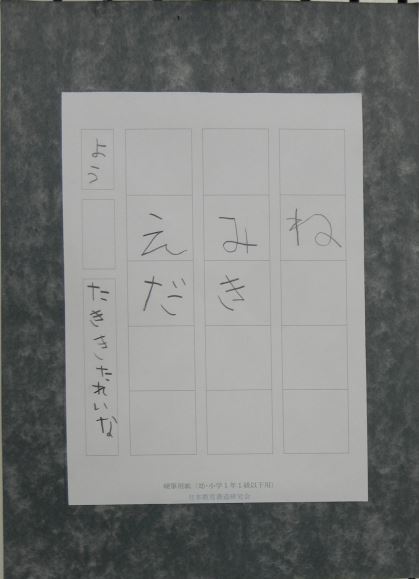 ね
みき
えだ
よう
たききたれいな
硬筆用紙(幼・小学1年1級以下用)
日本教育書道研究会